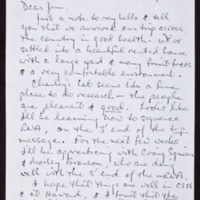 Dear Jim,
Just a note to say hello & tell
you that we survived our trip across
the country in good health. We're
settled into a beautiful rented house
with a large yard & many fruit trees
& a very comfortable environment.
Charlie's lab seems like a fine
place to do research - the people
are pleasant & good. Looks like
I'll be learning how to sequence
RNA, on the 3' end of the
message. For the next few weeks
I'll be apprenticing with Craig Squires
& who are doing
well with the 5' end of the mRNA.
I hope that things are well in CSH
& at Harvard, & trust that the